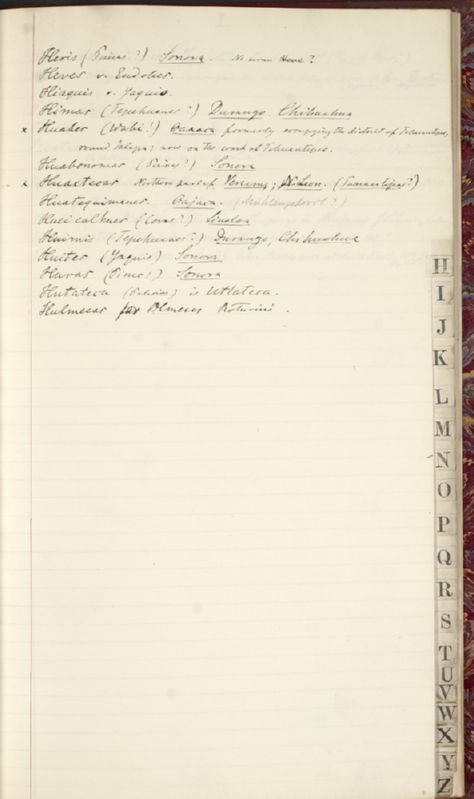 Heris (Pimas?) Sonora.
Heves v. Eudebes.
Hiaquis v. Yaquis.
Himas (Tepehuanes?) Durango, Chihuahua
x Huabes (Wabi!) Oaxaca formerly occupying the district of Tehuantepec,
now on the coast of Tehuantepec.
Huabonomas (Pimas?) Sonora
x Huastecas Northern part of ; (Tamaulipas?)
Huatequimanes. Oajaca.
Hueicalhues (Coras?) Sinaloa
Huimis (Tepehuanes?) Durango, Chihuahua
Huites (Yaquis) Sonora
Huras (Pimas) Sonora
Hutateca is Utlateca.
Hulmecas for Olmecas Boturini.
H
I
J
K
L
M
N
O
P
Q
R
S
T
U
V
W
X
Y
Z